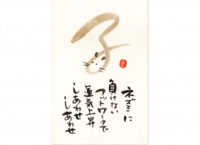 ネズミに
負けない
フットワークで
運気上昇
しあわせ
しあわせ